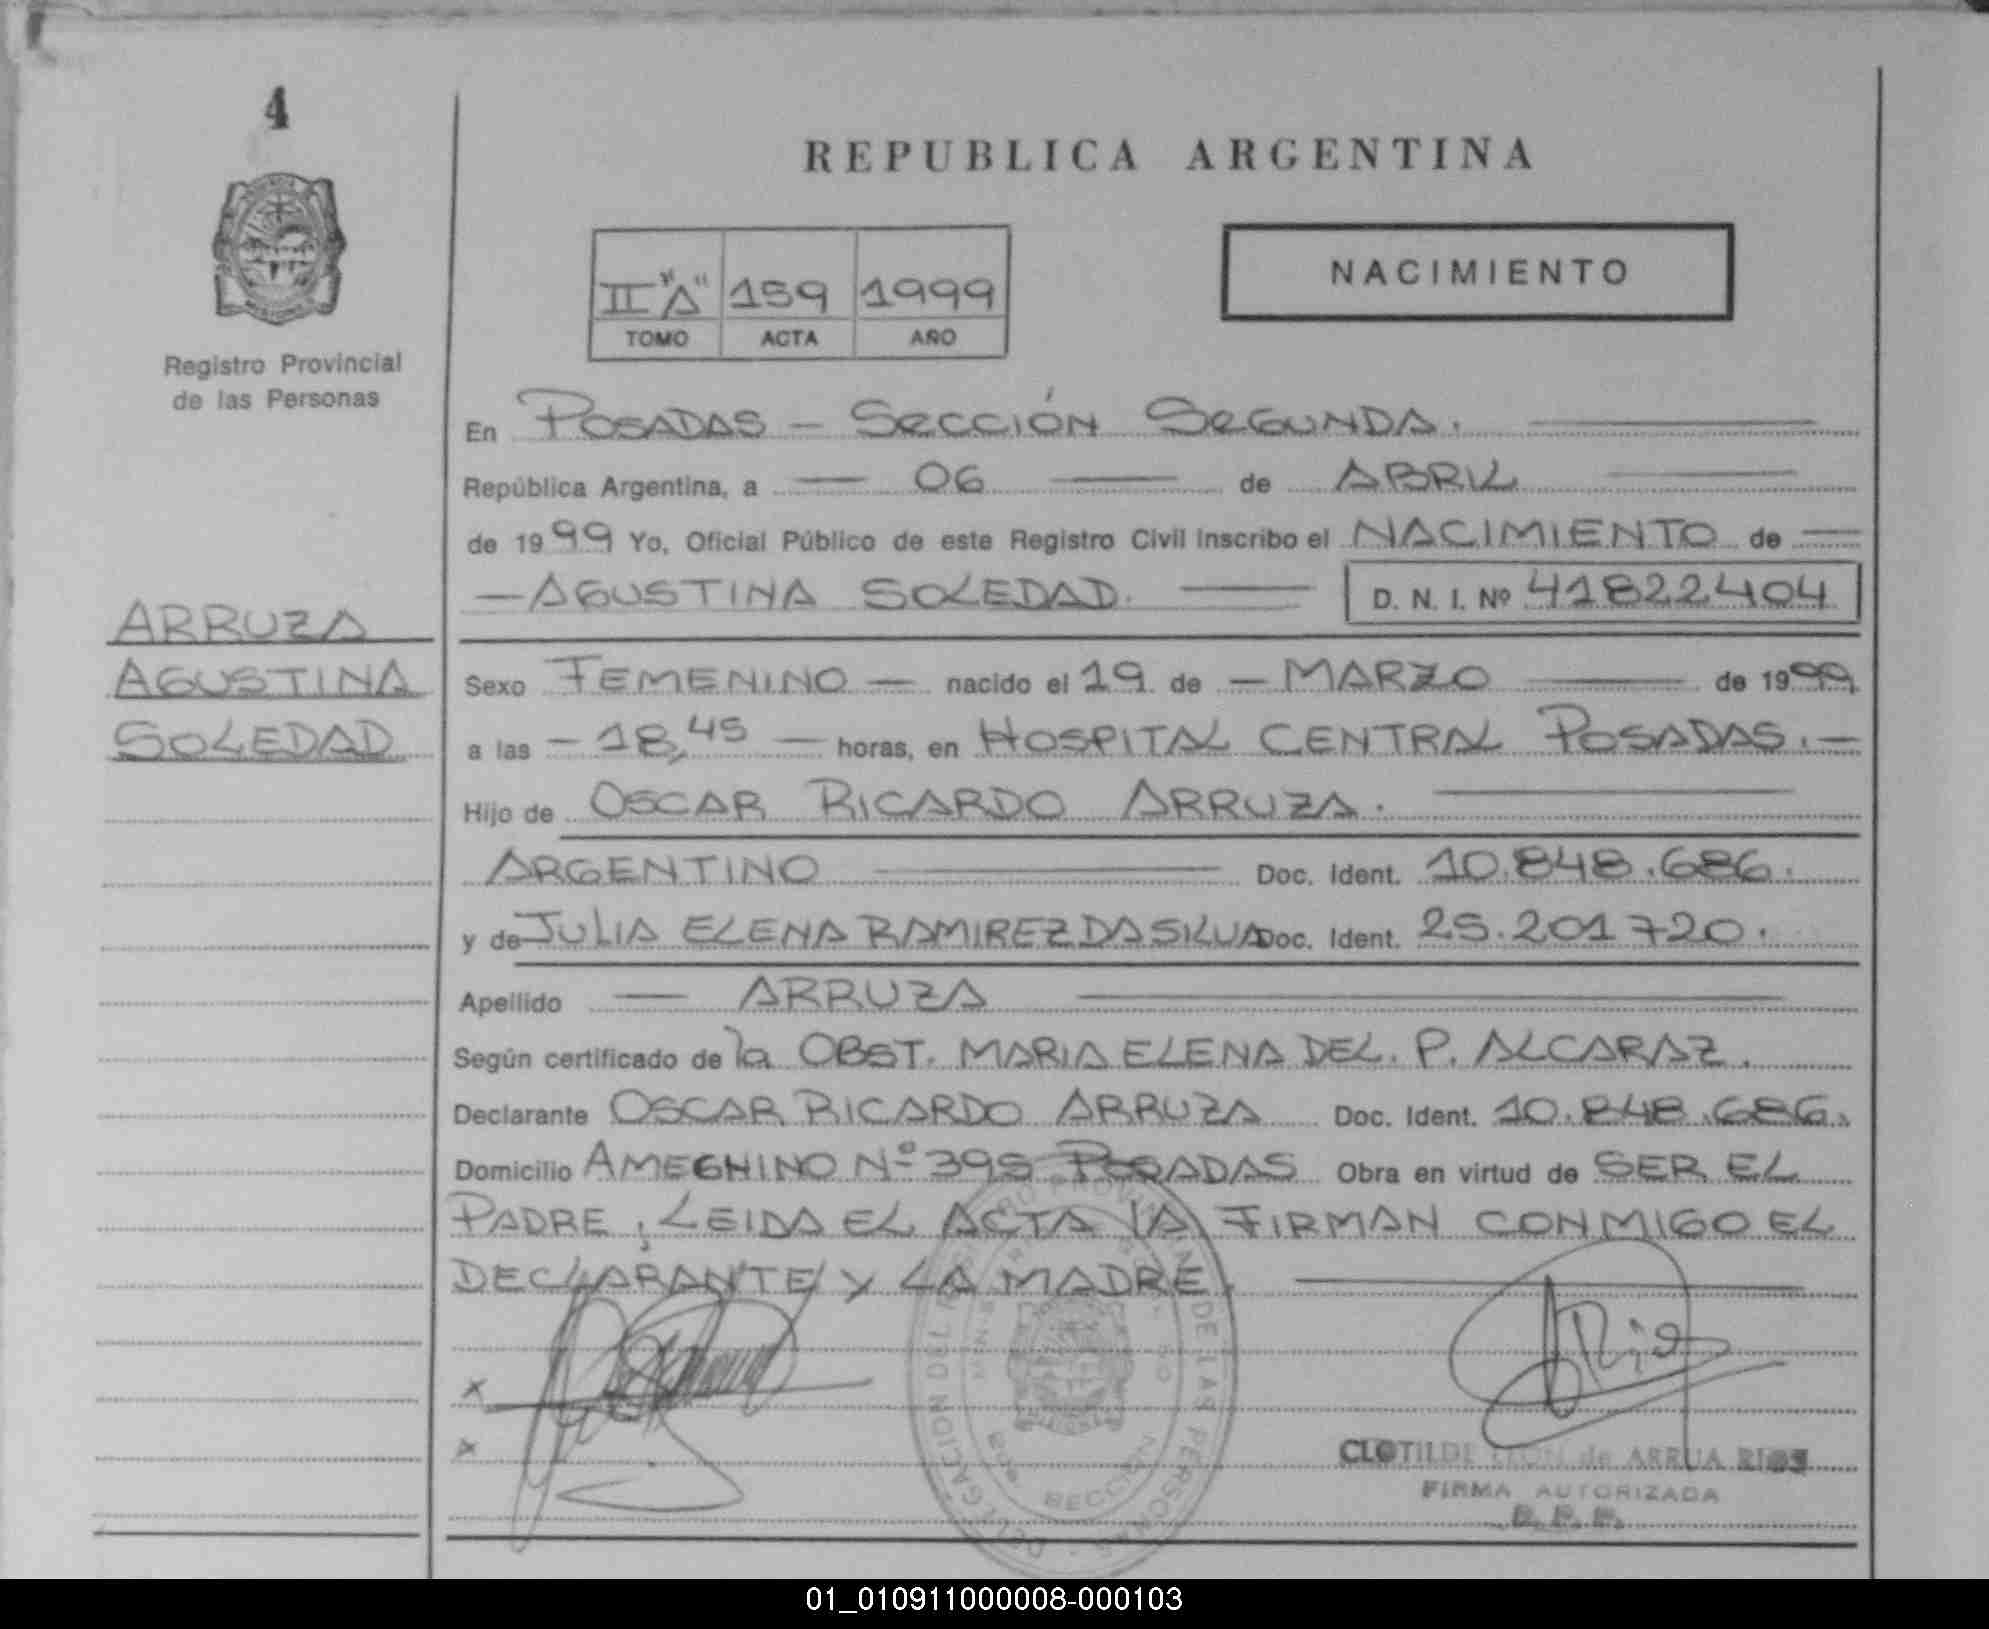 4
REPUBLICA ARGENTINA
NACIMIENTO
II "A" 159 1999
TOMO ACTA AÑO
Registro Provincial
de las Personas
En POSADAS - SECCIÓN SEGUNDA.
República Argentina, a 06 de ABRIL
de 1999 Yo, Oficial Público de este Registro Civil Inscribo el NACIMIENTO de
- AGUSTINA SOLEDAD. D. N. I. Nº 41822404
ARRUZA
AGUSTINA
SOLEDAD
Sexo FEMENINO - nacido el 19 de - MARZO de 1999
a las - 18,45 - horas, en HOSPITAL CENTRAL POSADAS. -
Hijo de OSCAR RICARDO ARRUZA.
ARGENTINO Doc. Ident. 10.848.686.
y de JULIA ELENA RAMIREZ DA SILVA Doc. Ident. 25.201720.
Apellido - ARRUZA
Según certificado de la OBST. MARIA ELENA DEL. P. ALCARAZ.
Declarante OSCAR RICARDO ARRUZA Doc. Ident. 10.848.686.
Domicilio AMEGHINO Nº 395 POSADAS Obra en virtud de SER EL
PADRE, LEIDA EL ACTA LA FIRMAN CONMIGO EL
DECLARANTE Y LA MADRE.
x
x
DELEGACION DEL REGISTRO PROVINCIAL DE LAS PERSONAS
CLOTILDE LEON de ARRUA RIOS
FIRMA AUTORIZADA
R. P. P.
01_010911000008-000103